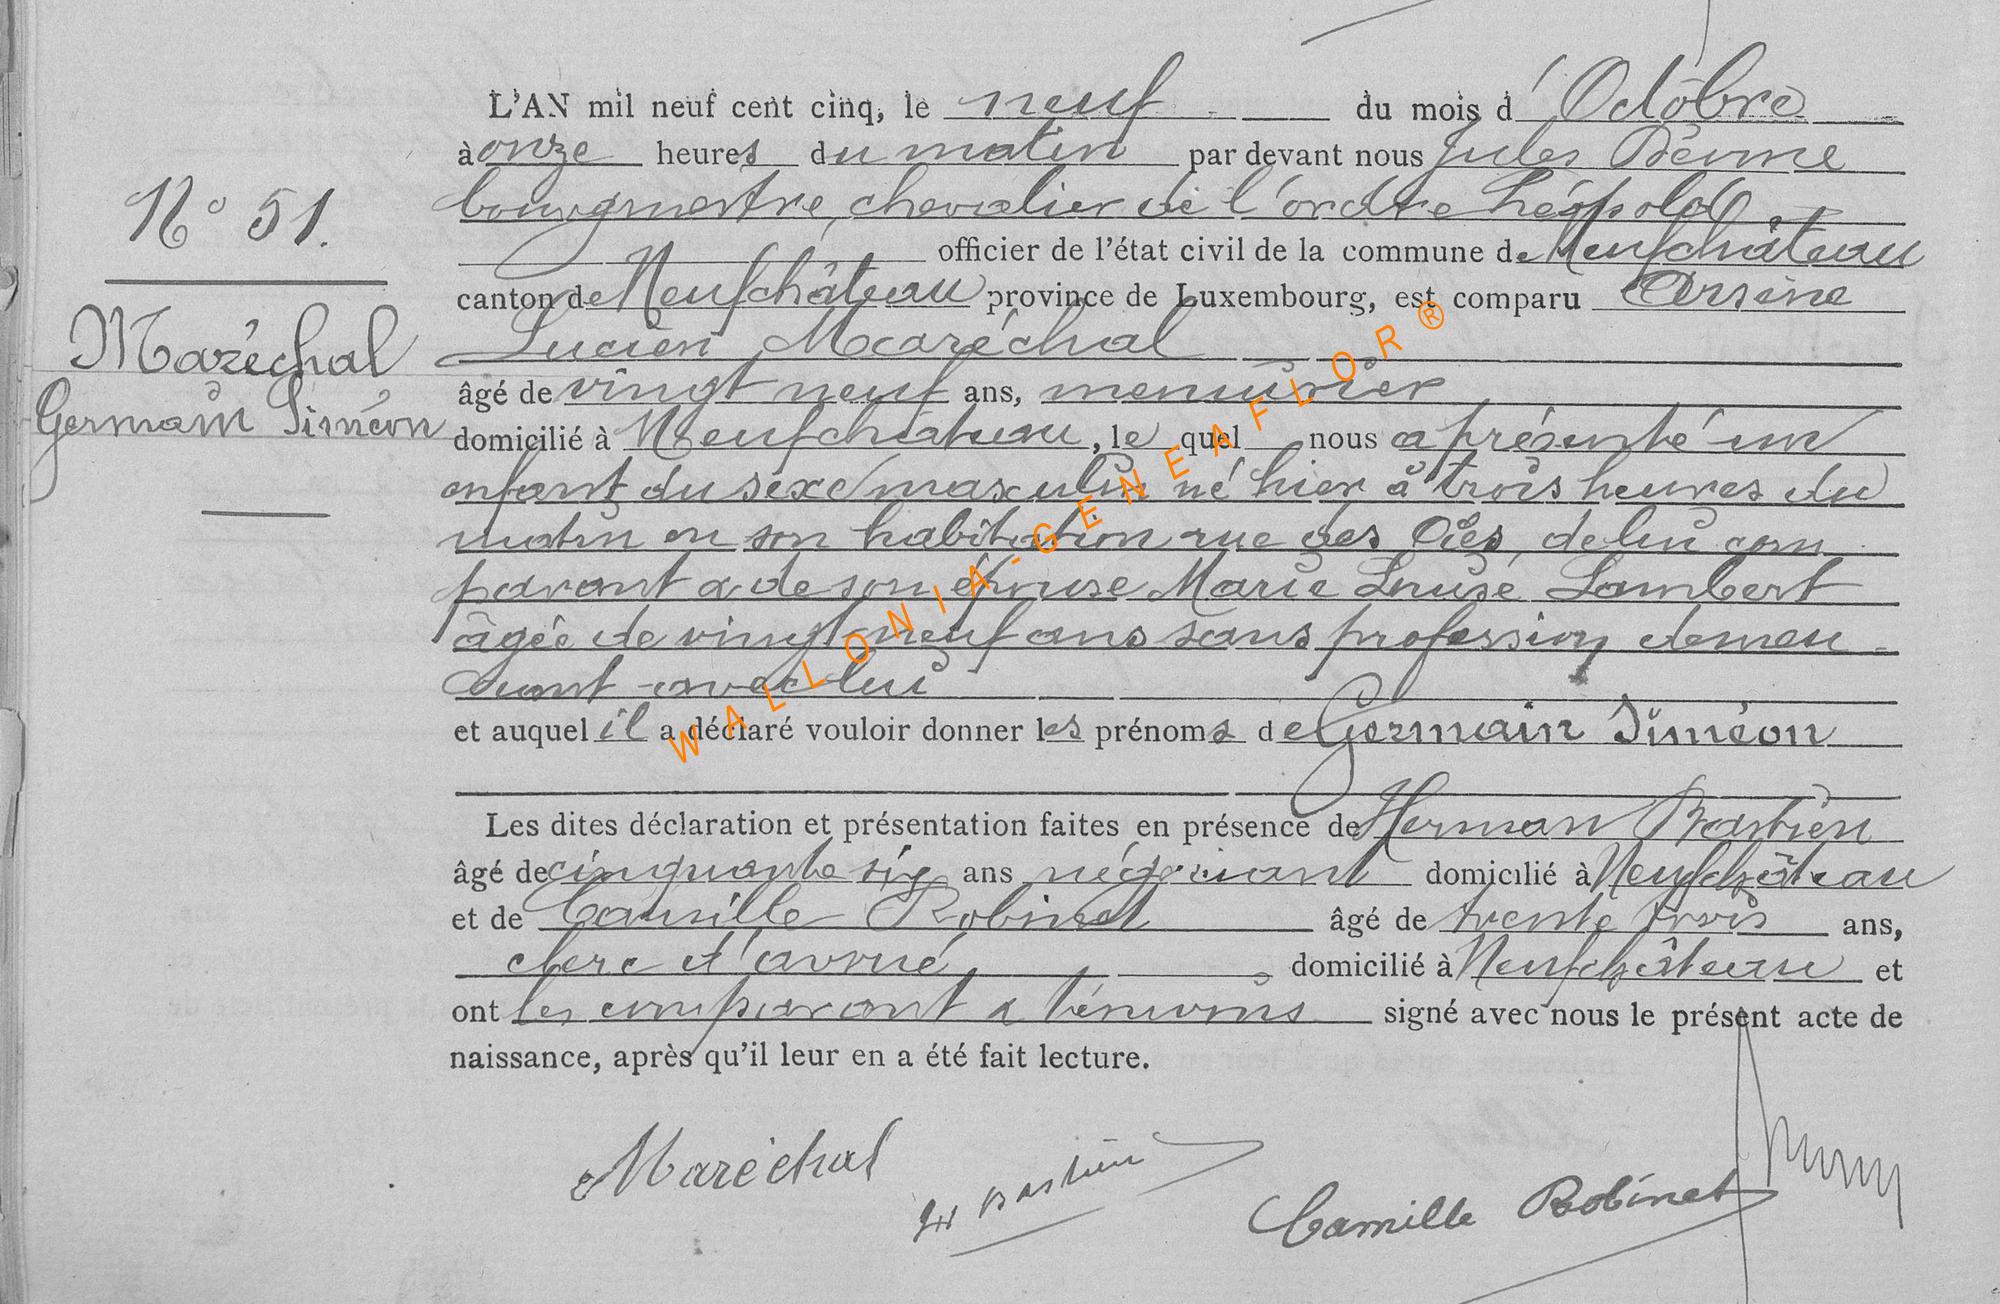 L'AN mil neuf cent cinq, le neuf du mois d'Octobre
à onze heures du matin par devant nous Jules
bourgmestre, chevalier de l'ordre Léopold
officier de l'état civil de la commune de Neufchâteau
canton de Neufchâteau province de Luxembourg, est comparu Arsène
N° 51.
Lucien Maréchal
Maréchal
Germain Siméon
âgé de vingt neuf ans, menuisier
domicilié à Neufchâteau, lequel nous a présenté un
enfant du sexe masculin né hier à trois heures du
matin en son habitation rue des Oies, de lui com
parant & de son épouse Marie Louise Lambert
âgée de vingt neuf ans sans profession demeu-
rant avec lui
et auquel il a déclaré vouloir donner les prénoms de Germain Siméon
Les dites déclaration et présentation faites en présence de Herman Bastien
âgé de cinquante six ans négociant domicilié à Neufchâteau
et de Camille Robinet âgé de trente trois ans,
clerc d'avoué domicilié à Neufchâteau et
ont les comparant & témoins signé avec nous le présent acte de
naissance, après qu'il leur en a été fait lecture.
Maréchal
Bastien
Camille Robinet
WALLONIA-GENEAFLOR®